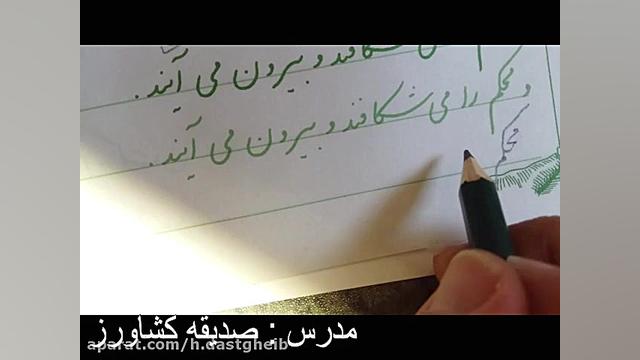 شکافند و بیرون می آیند.
و محکم را می شکافند و بیرون می آیند.
محکم
مدرس : صدیقه کشاورز
aparat.com/h.dastgheib